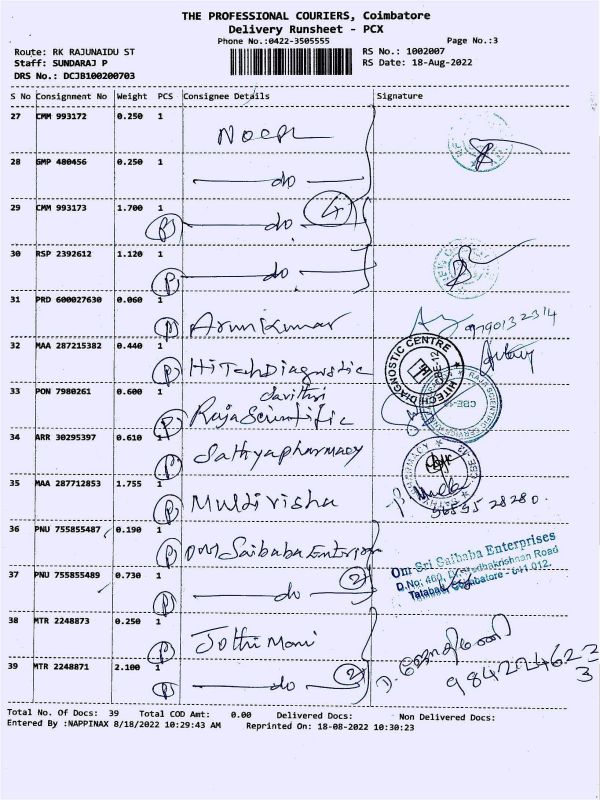 THE PROFESSIONAL COURIERS, Coimbatore
Delivery Runsheet - PCX
Phone No.:0422-3505555 Page No.:3
Route: RK RAJUNAIDU ST RS No.: 1002007
Staff: SUNDARAJ P RS Date: 18-Aug-2022
DRS No.: DCJB100200703
S No Consignment No Weight PCS Consignee Details Signature
27 CMM 993172 0.250 1
28 GMP 480456 0.250 1 do
29 CMM 993173 1.700 1 P do 4
30 RSP 2392612 1.120 1 P do
31 PRD 600027630 0.060 1 P Arunkumar
32 MAA 287215382 0.440 1 P Hitech Diagnostic HITECH DIAGNOSTIC CENTRE CBE-12
33 PON 7980261 0.600 1 P Savithri Raja Scientific
34 ARR 30295397 0.610 1 P Sathyapharmacy
35 MAA 287712853 1.755 1 P Multi Visha
36 PNU 755855487 0.190 1 P OM Saibaba Enterprises Om Sri Saibaba Enterprises
37 PNU 755855489 0.730 1 P do 2 D.No: 460, Dr. Radhakrishnan Road
Tatabad, Coimbatore - 641 012.
38 MTR 2248873 0.250 1 P Jothi Mani
39 MTR 2248871 2.100 1 P do 2
Total No. Of Docs: 39 Total COD Amt: 0.00 Delivered Docs: Non Delivered Docs:
Entered By :NAPPINAX 8/18/2022 10:29:43 AM Reprinted On: 18-08-2022 10:30:23